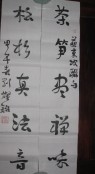 茶笋尽禅味
松杉真法音
苏东坡诗句
甲午春刘